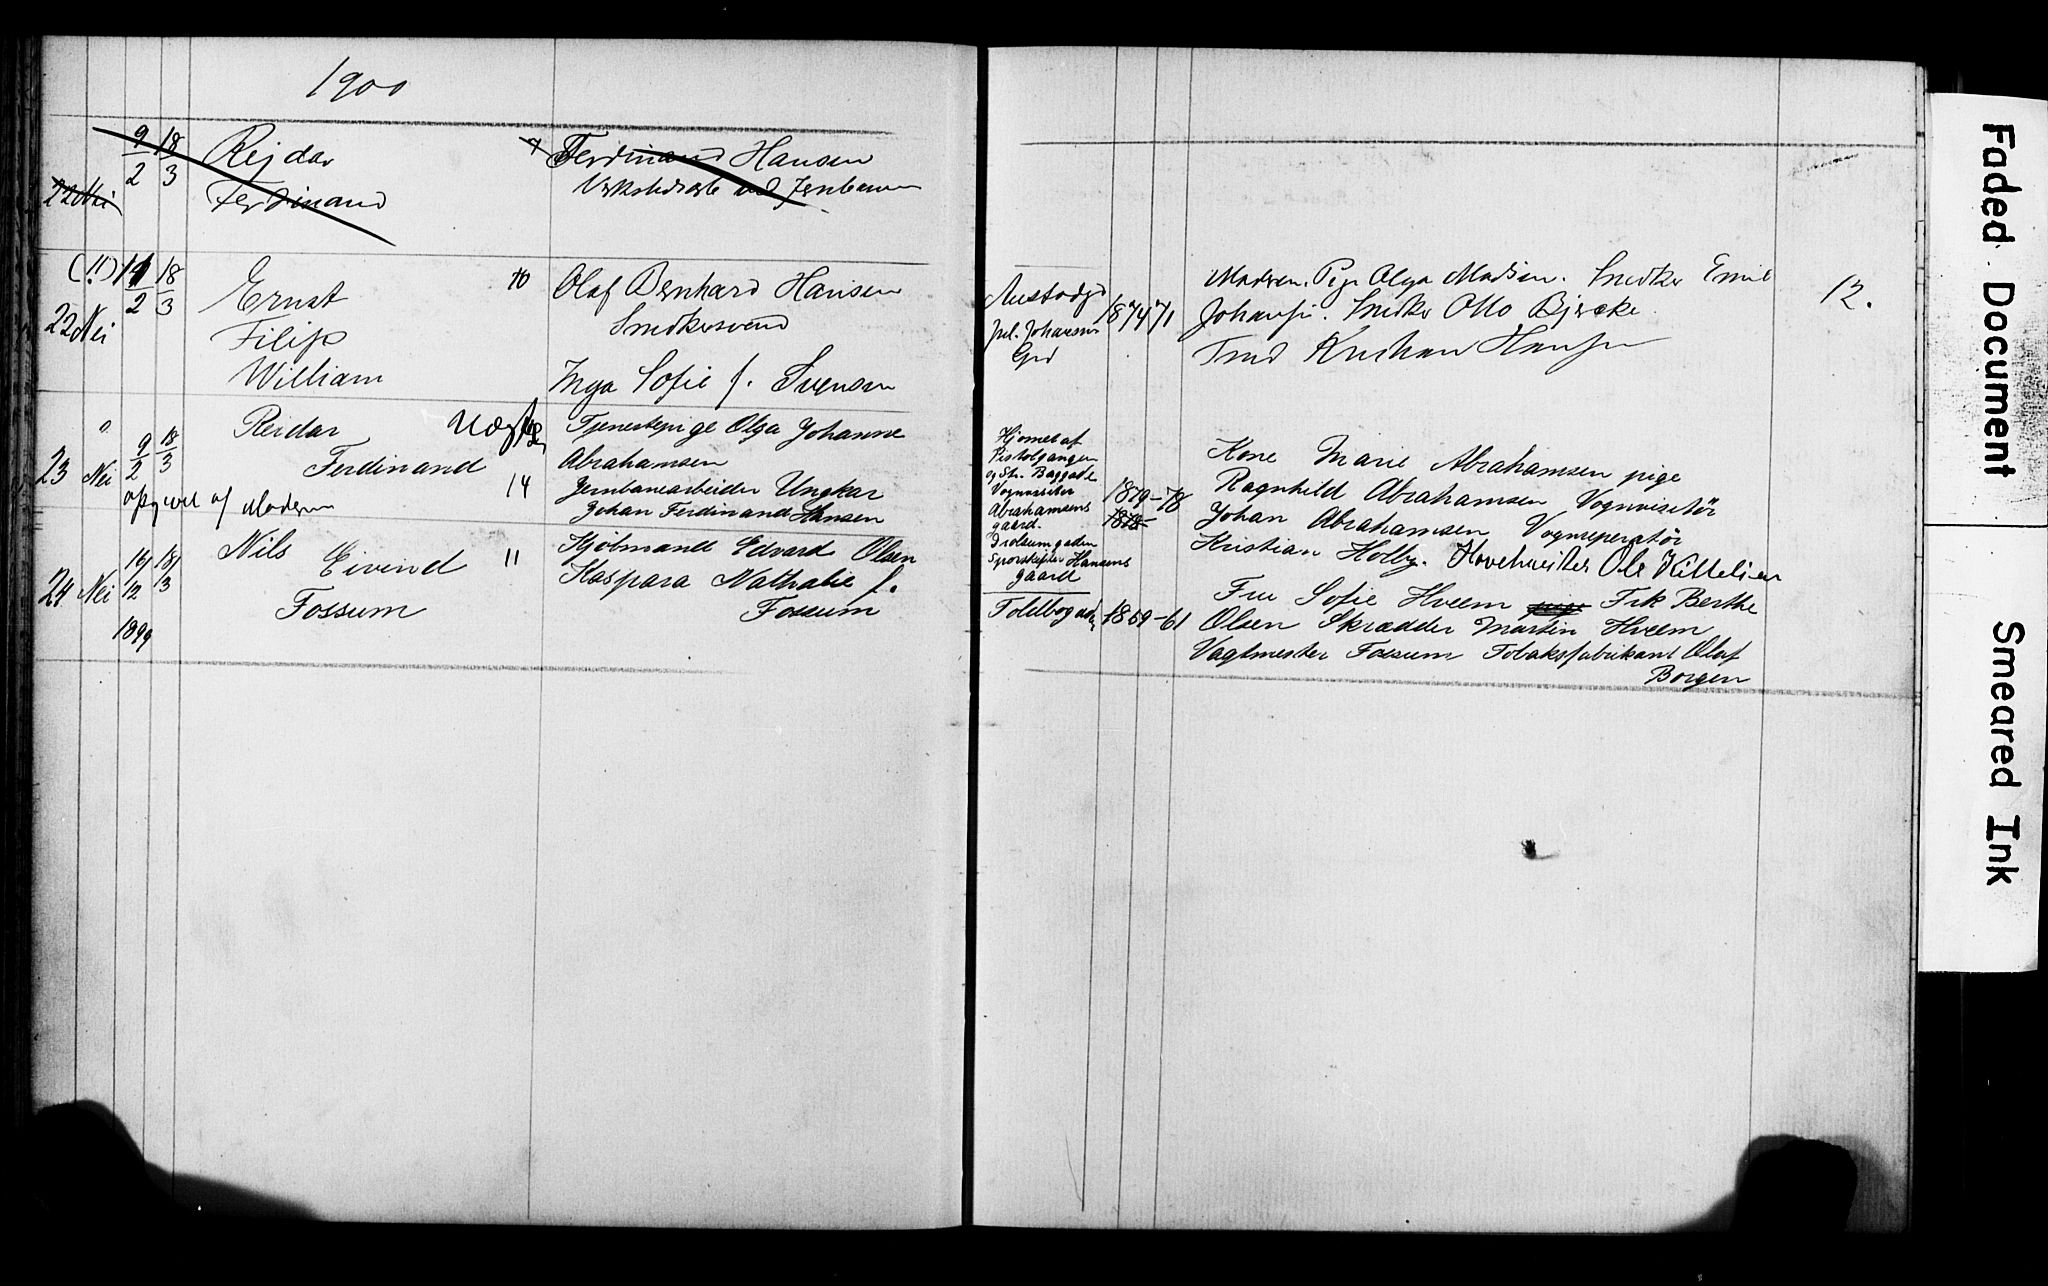 1900
9/2 18/3 Rejdar 7 Ferdinand Hansen
22 Nei Ferdinand Verkstedsarb ved Jernbanen
(!!) 11/2 18/3
22 Nei Ernst 10 Olaf Bernhard Hansen
Filip Smedkersvend
William Inga Sofie f. Svensen
23 Nei 9/2 18/3 Reidar Uægte Tjenestepige Olga Johanne
Ferdinand Abrahamsen
opgivet af Moderen 14 Jernbanearbeider Ungkar
Johan Ferdinand Hansen
24 Nei 16/12 18/3 Nils Eivind 11 Kjøbmand Edvard Olsen
Kaspara Nathalie f.
Fossum Fossum
1899
Moderen. Pige Olga Madsen. Snedker Emil
Jul. Johansens 1874 71 Johansen. Snedker Otto Bjercke 12.
Grd Kristian Hansen
Hjørnet af
Pistolgangen
og St. Baggade
Vognvisitør
Abrahamsens
gaard.
Sporskifter Hansens
gaard
1879-78
1878-
Kone Marie Abrahamsen pige
Ragnhild Abrahamsen Vognvisitør
Johan Abrahamsen Vognreperatør
Kristian Holby. Hovedmester Ole Kittelsen
Toldbogaden 1859-61
Fru Sofie Hveem pige Frk Berthe
Olsen Skrædder Martin Hveem
Vagtmester Fossum Tobaksfabrikant Olaf
Borgen
Faded Document
Smeared Ink